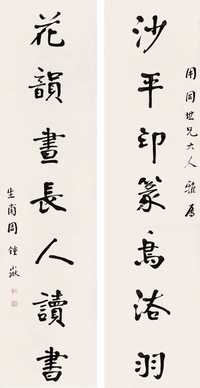 用世兄大人雅屬
沙平印篆鳥浴羽
花韻晝長人讀書
生甫周鍾嶽